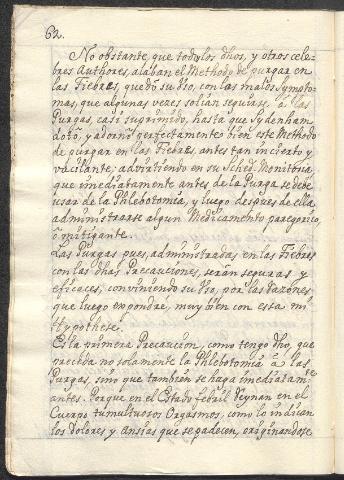 62.
No obstante que todos los dhos, y otros cele-
bres Authores, alaban el Methodo de purgar en
las Fiebres, quedó su Uso, con las malos Sympto-
mas, que algunas vezes solian seguirse à las
Purgas, casi suprimido, hasta que Sydenham
dotó, y adornó perfectamente bien este Methodo
de purgar en las Fiebres, antes tan incierto y
vacilante; advirtiendo en su Sched. Monitoria,
que imediatamente antes de la Purga se debe
usar de la Phlebotomia, y luego despues de ella
administrarse algun Medicamento paregorico,
ò mitigante.
Las Purgas pues, administradas en las Fiebres
con las dhas Precauciones, serán seguras y
eficaces, conviniendo su Uso, por las Razones
que luego expondré, muy bien con essa mi
Hypothese.
Es la primera Precaucion, como tengo dho, que
preceda no solamente la Phlebotomia à las
Purgas, sino que tambien se haga imediatamte
antes. Porque en el Estado febril Reynan en el
Cuerpo tumultuosos Orgasmos, como lo indican
los Dolores y Ansias que se padecen, originandose